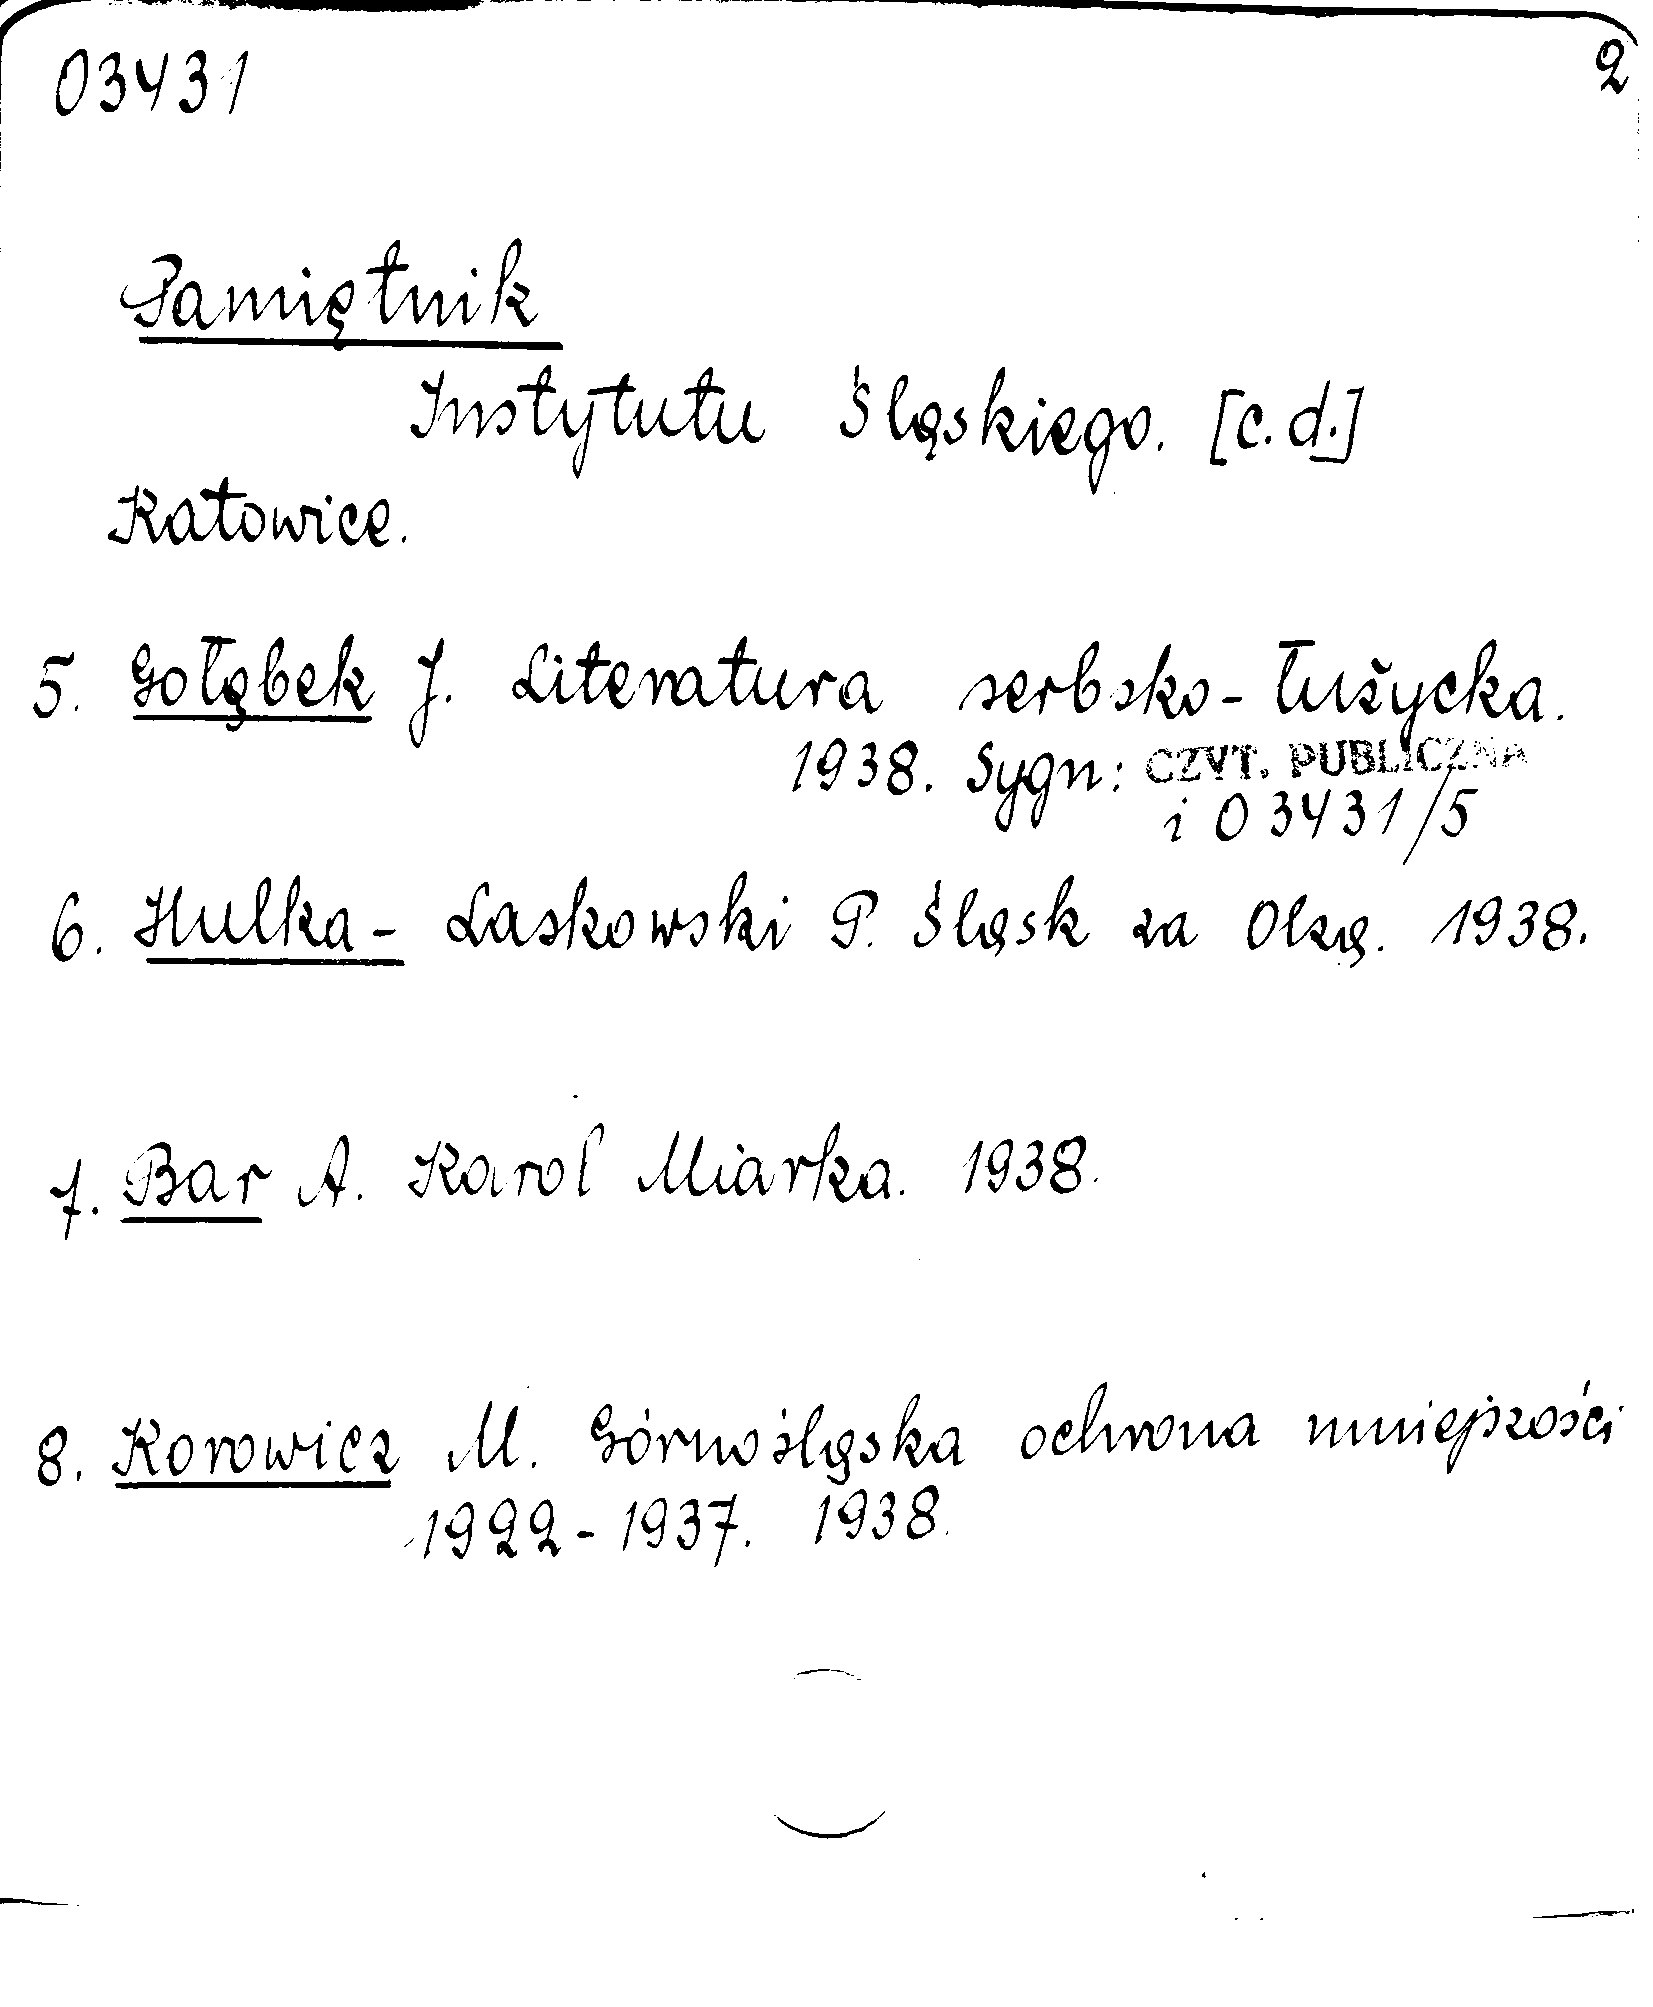 03431 2
Pamiętnik
Instytutu Śląskiego. [c.d.]
Katowice.
5. Gołąbek J. Literatura serbsko-łużycka.
1938. Sygn: CZYT. PUBLICZNA
i 03431/5
6. Hulka- Laskowski P. Śląsk za Olzą. 1938.
7. Bar A. Karol Miarka. 1938.
8. Korowicz M. Górnośląska ochrona mniejszości
1922-1937. 1938.